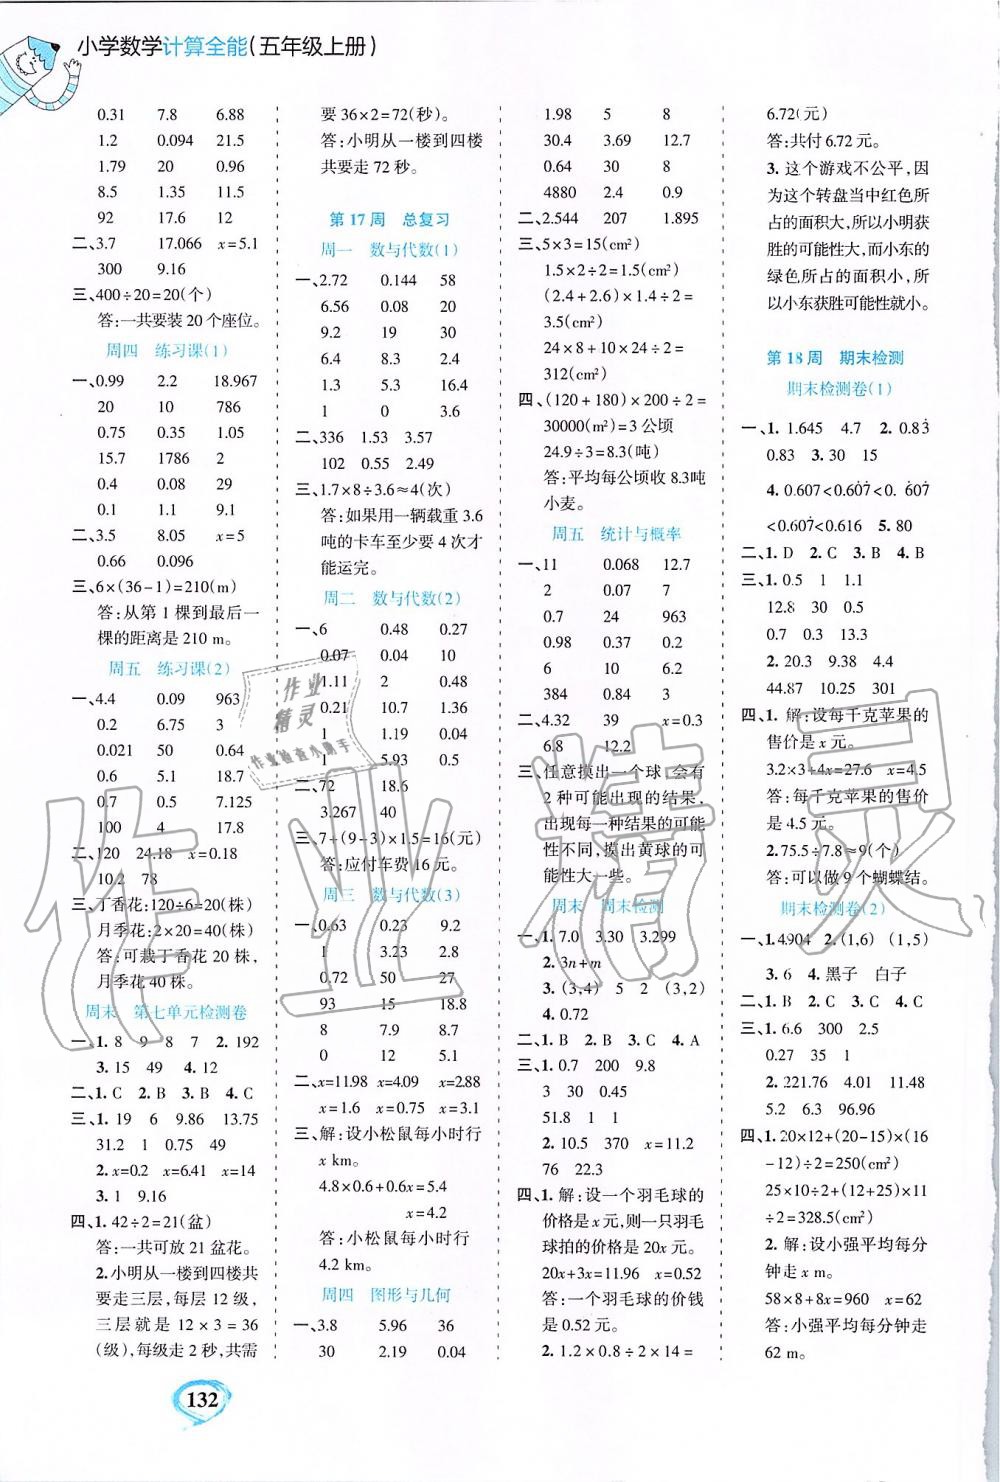 小学数学计算全能(五年级上册)
0.31 7.8 6.88
1.2 0.094 21.5
1.79 20 0.96
8.5 1.35 11.5
92 17.6 12
二、3.7 17.066 x=5.1
300 9.16
三、400÷20=20(个)
答:一共要装20个座位。
周四 练习课(1)
一、0.99 2.2 18.967
20 10 786
0.75 0.35 1.05
15.7 1786 2
0.4 0.08 29
0.1 1.1 9.1
二、3.5 8.05 x=5
0.66 0.096
三、6×(36-1)=210(m)
答:从第1棵到最后一
棵的距离是210 m。
周五 练习课(2)
一、4.4 0.09 963
0.2 6.75 3
0.021 50 0.64
0.6 5.1 18.7
0.7 0.5 7.125
100 4 17.8
二、120 24.18 x=0.18
10.2 78
三、丁香花:120÷6=20(株)
月季花:2×20=40(株)
答:可栽丁香花20株,
月季花40株。
周末 第七单元检测卷
一、1. 8 9 8 7 2. 192
3. 15 49 4. 12
二、1. C 2. B 3. B 4. C
三、1. 19 6 9.86 13.75
31.2 1 0.75 49
2. x=0.2 x=6.41 x=14
3. 1 9.16
四、1. 42÷2=21(盆)
答:一共可放21盆花。
2. 小明从一楼到四楼共
要走三层,每层12级,
三层就是12×3=36
(级),每级走2秒,共需
要36×2=72(秒)。
答:小明从一楼到四楼
共要走72秒。
第17周 总复习
周一 数与代数(1)
一、2.72 0.144 58
6.56 0.08 20
9.2 19 30
6.4 8.3 2.4
1.3 5.3 16.4
1 0 3.6
二、336 1.53 3.57
102 0.55 2.49
三、1.7×8÷3.6≈4(次)
答:如果用一辆载重3.6
吨的卡车至少要4次才
能运完。
周二 数与代数(2)
一、6 0.48 0.27
0.07 0.04 10
1.11 2 0.48
0.21 10.7 1.36
1 1.19 0.04
1 5.93 0.5
二、72 18.6
3.267 40
三、7+(9-3)×1.5=16(元)
答:应付车费16元。
周三 数与代数(3)
一、0.63 0.23 9.2
1 3.23 2.8
0.72 50 27
93 15 18.8
8 7.9 8.7
0 12 5.1
二、x=11.98 x=4.09 x=2.88
x=1.6 x=0.75 x=3.1
三、解:设小松鼠每小时行
x km。
4.8×0.6+0.6x=5.4
x=4.2
答:小松鼠每小时行
4.2 km。
周四 图形与几何
一、3.8 5.96 36
30 2.19 0.04
1.98 5 8
30.4 3.69 12.7
0.64 30 8
4880 2.4 0.9
二、2.544 207 1.895
三、5×3=15(cm²)
1.5×2÷2=1.5(cm²)
(2.4+2.6)×1.4÷2=
3.5(cm²)
24×8+10×24÷2=
312(cm²)
四、(120+180)×200÷2=
30000(m²)=3公顷
24.9÷3=8.3(吨)
答:平均每公顷收8.3吨
小麦。
周五 统计与概率
一、11 0.068 12.7
2 0.07 7
0.7 24 963
0.98 0.37 0.2
6 10 6.2
384 0.84 3
二、4.32 39 x=0.3
6.8 12.2
三、任意摸出一个球,会有
2种可能出现的结果,
出现每一种结果的可能
性不同,摸出黄球的可
能性大一些。
周末 周末检测
一、1. 7.0 3.30 3.299
2. 3n+m
3. (3,4) 5 2 (3,2)
4. 0.72
二、1. B 2. B 3. C 4. A
三、1. 0.7 200 9.8
3 30 0.45
51.8 1 1
2. 10.5 370 x=11.2
76 22.3
四、1. 解:设一个羽毛球的
价格是x元,则一只羽毛
球拍的价格是20x元。
20x+3x=11.96 x=0.52
答:一个羽毛球的价钱
是0.52元。
2. 1.2×0.8÷2×14=
6.72(元)
答:共付6.72元。
3. 这个游戏不公平,因
为这个转盘当中红色所
占的面积大,所以小明获
胜的可能性大,而小东的
绿色所占的面积小,所
以小东获胜可能性就小。
第18周 期末检测
期末检测卷(1)
一、1. 1.645 4.7 2. 0.83̇
0.83 3. 30 15
4. 0.607<0.6̇07̇<0.6̇07̇
<0.607̇<0.616 5. 80
二、1. D 2. C 3. B 4. B
三、1. 0.5 1 1.1
12.8 30 0.5
0.7 0.3 13.3
2. 20.3 9.38 4.4
44.87 10.25 301
四、1. 解:设每千克苹果的
售价是x元。
3.2×3+4x=27.6 x=4.5
答:每千克苹果的售价
是4.5元。
2.75.5÷7.8≈9(个)
答:可以做9个蝴蝶结。
期末检测卷(2)
一、1.4.904 2. (1,6) (1,5)
3. 6 4. 黑子 白子
二、1. B 2. C 3. C 4. C
三、1. 6.6 300 2.5
0.27 35 1
2. 221.76 4.01 11.48
5.2 6.3 96.96
四、1. 20×12+(20-15)×(16
-12)÷2=250(cm²)
25×10÷2+(12+25)×11
÷2=328.5(cm²)
2. 解:设小强平均每分
钟走x m。
58×8+8x=960 x=62
答:小强平均每分钟走
62 m。
132
作业精灵
作业
精灵
作业检查小助手